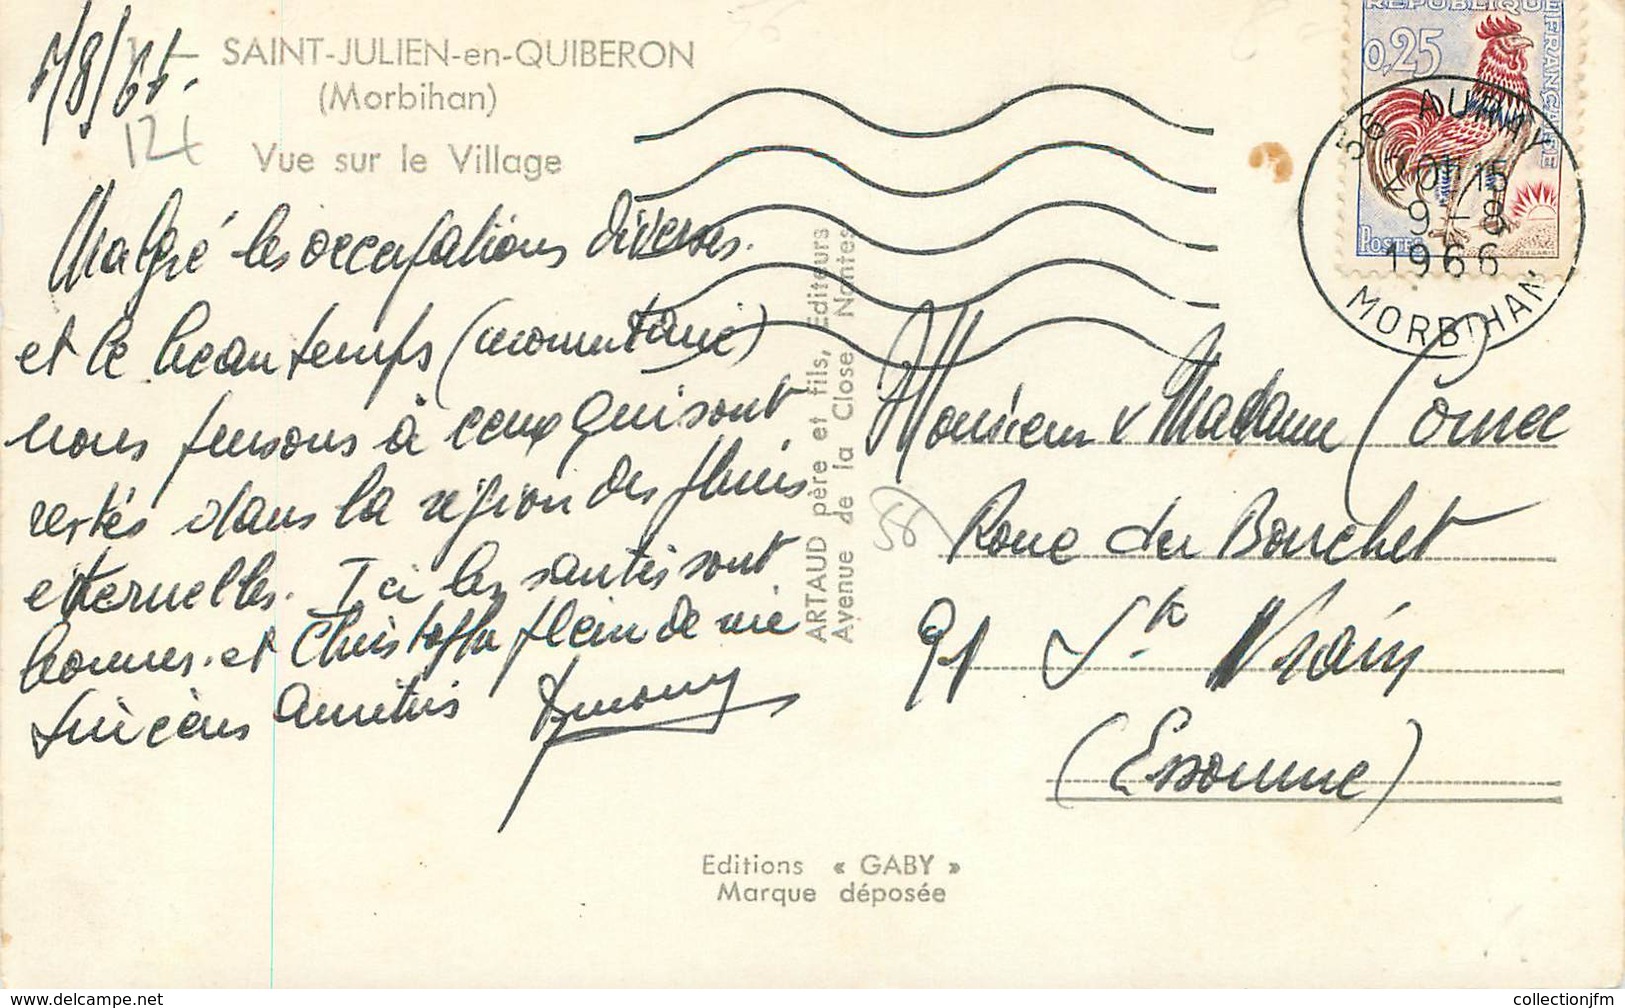 SAINT-JULIEN-en-QUIBERON
(Morbihan)
Vue sur le Village
12t
Malgré les occupations diverses.
et le beau temps (momentané)
nous pensons à ceux qui sont
restés dans la région des pluies
eternelles. Ici les santés sont
bonnes. et Christophe plein de vie
Sincères Amitiés
ARTAUD père et fils, Editeurs
Avenue de la Close Nantes
REPUBLIQUE FRANÇAISE
0,25
POSTES
DECARIS
56 AURAY
20H15
9-8
1966
MORBIHAN
Monsieur & Madame
Roue du Bouchet
91 Ste Vrain
(Essonne)
Editions « GABY »
Marque déposée
collectionjfm